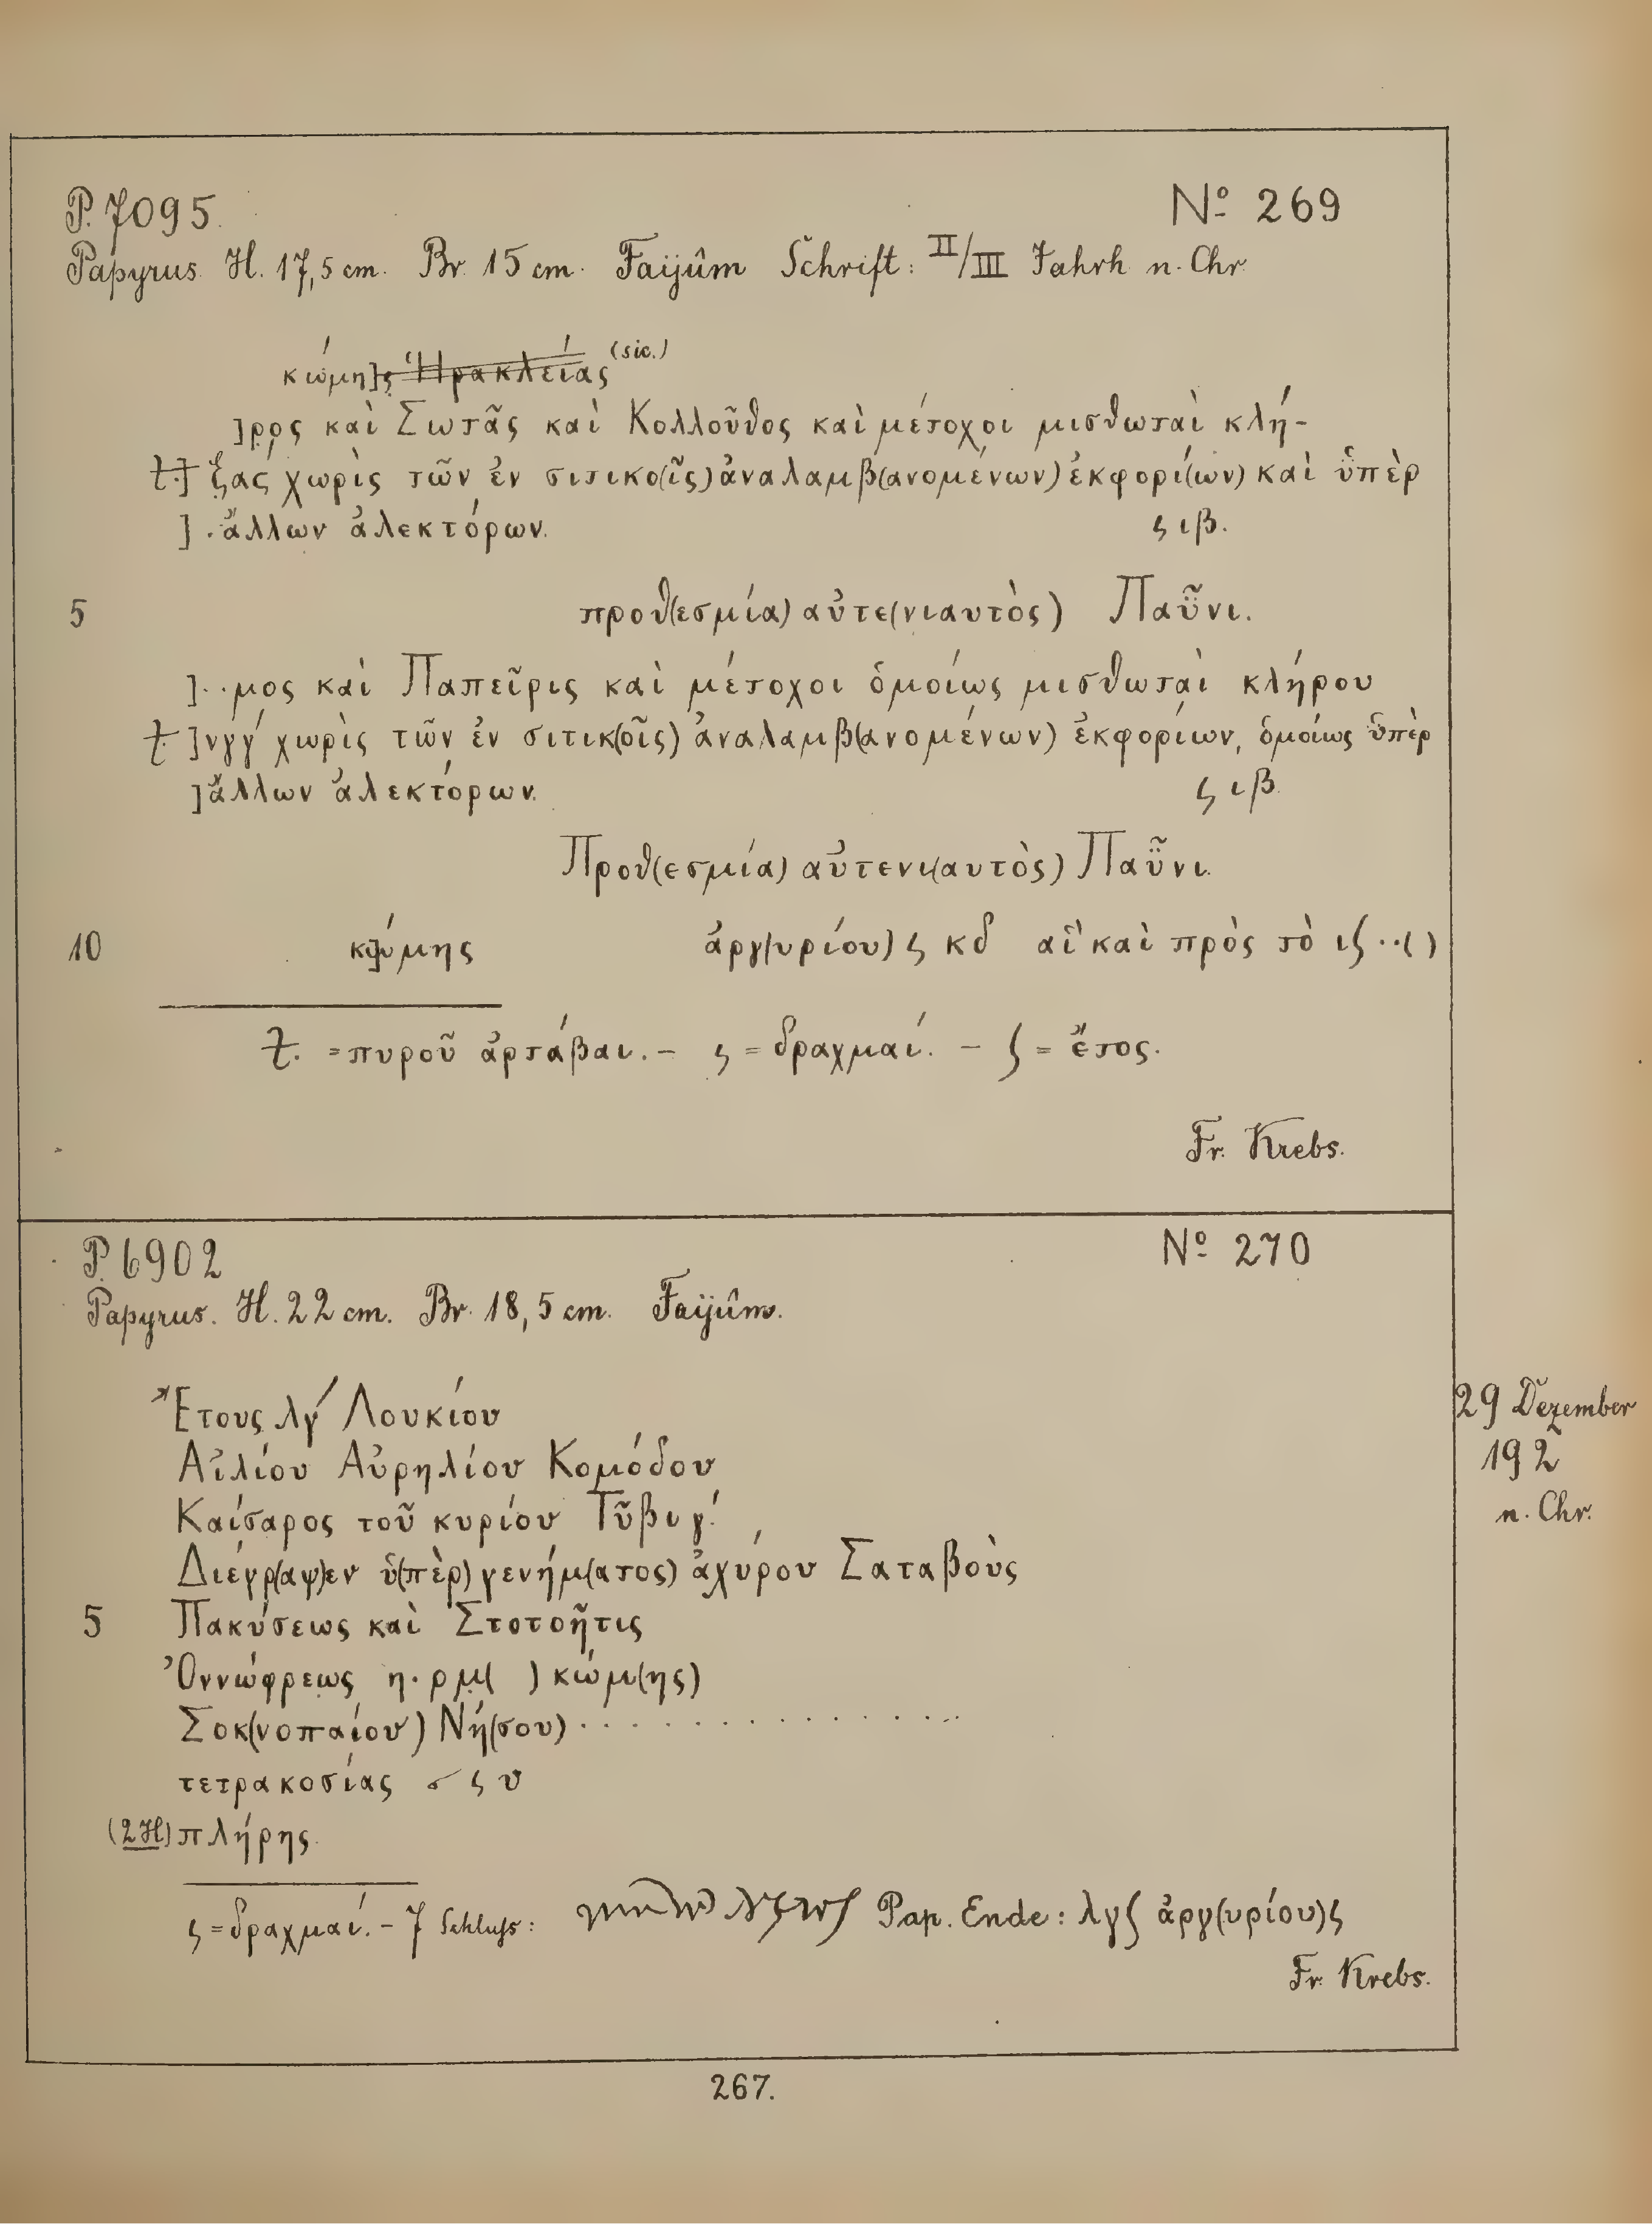 P. 7095. Nº 269
Papyrus. H. 17,5 cm. Br. 15 cm. Faijûm Schrift: II/III Jahrh. n. Chr.
κώμη]ς Ἡρακλείας (sic.)
]ρος καὶ Σωτᾶς καὶ Κολλοῦθος καὶ μέτοχοι μισθωταὶ κλή-
] ξας χωρὶς τῶν ἐν σιτικο(ῖς) ἀναλαμβ(ανομένων) ἐκφορί(ων) καὶ ὑπὲρ
] . ἄλλων ἀλεκτόρων. ϛ ιβ.
5 προθ(εσμία) αὐτε(νιαυτὸς) Παῦνι.
]..μος καὶ Παπεῖρις καὶ μέτοχοι ὁμοίως μισθωταὶ κλήρου
]νγγ́ χωρὶς τῶν ἐν σιτικ(οῖς) ἀναλαμβ(ανομένων) ἐκφορίων, ὁμοίως ὑπὲρ
]ἄλλων ἀλεκτόρων. ϛ ιβ.
Προθ(εσμία) αὐτενι(αυτὸς) Παῦνι.
10 κ]ώμης ἀργ(υρίου) ϛ κδ αἳ καὶ πρὸς τὸ ιζ ..( )
= πυροῦ ἀρτάβαι. – ϛ = δραχμαί. – ʃ = ἔτος.
Fr. Krebs.
P. 6902 Nº 270
Papyrus. H. 22 cm. Br. 18,5 cm. Faijûm.
Ἔτους λγ´ Λουκίου
29 Dezember
Αἰλίου Αὐρηλίου Κομόδου
192
Καίσαρος τοῦ κυρίου Τῦβι γ´.
n. Chr.
Διέγρ(αψ)εν ὑ(πὲρ) γενήμ(ατος) ἀχύρου Σαταβοὺς
5 Πακύσεως καὶ Στοτοῆτις
Ὀννώφρεως η.ρμ( ) κώμ(ης)
Σοκ(νοπαίου) Νή(σου) . . . . . . . . . . . . . .
τετρακοσίας σ ϛ υ
(2 H) πλήρης.
ϛ = δραχμαί. – 7 Schluss: Pap. Ende: λγʃ ἀργ(υρίου) ϛ
Fr. Krebs.
267.